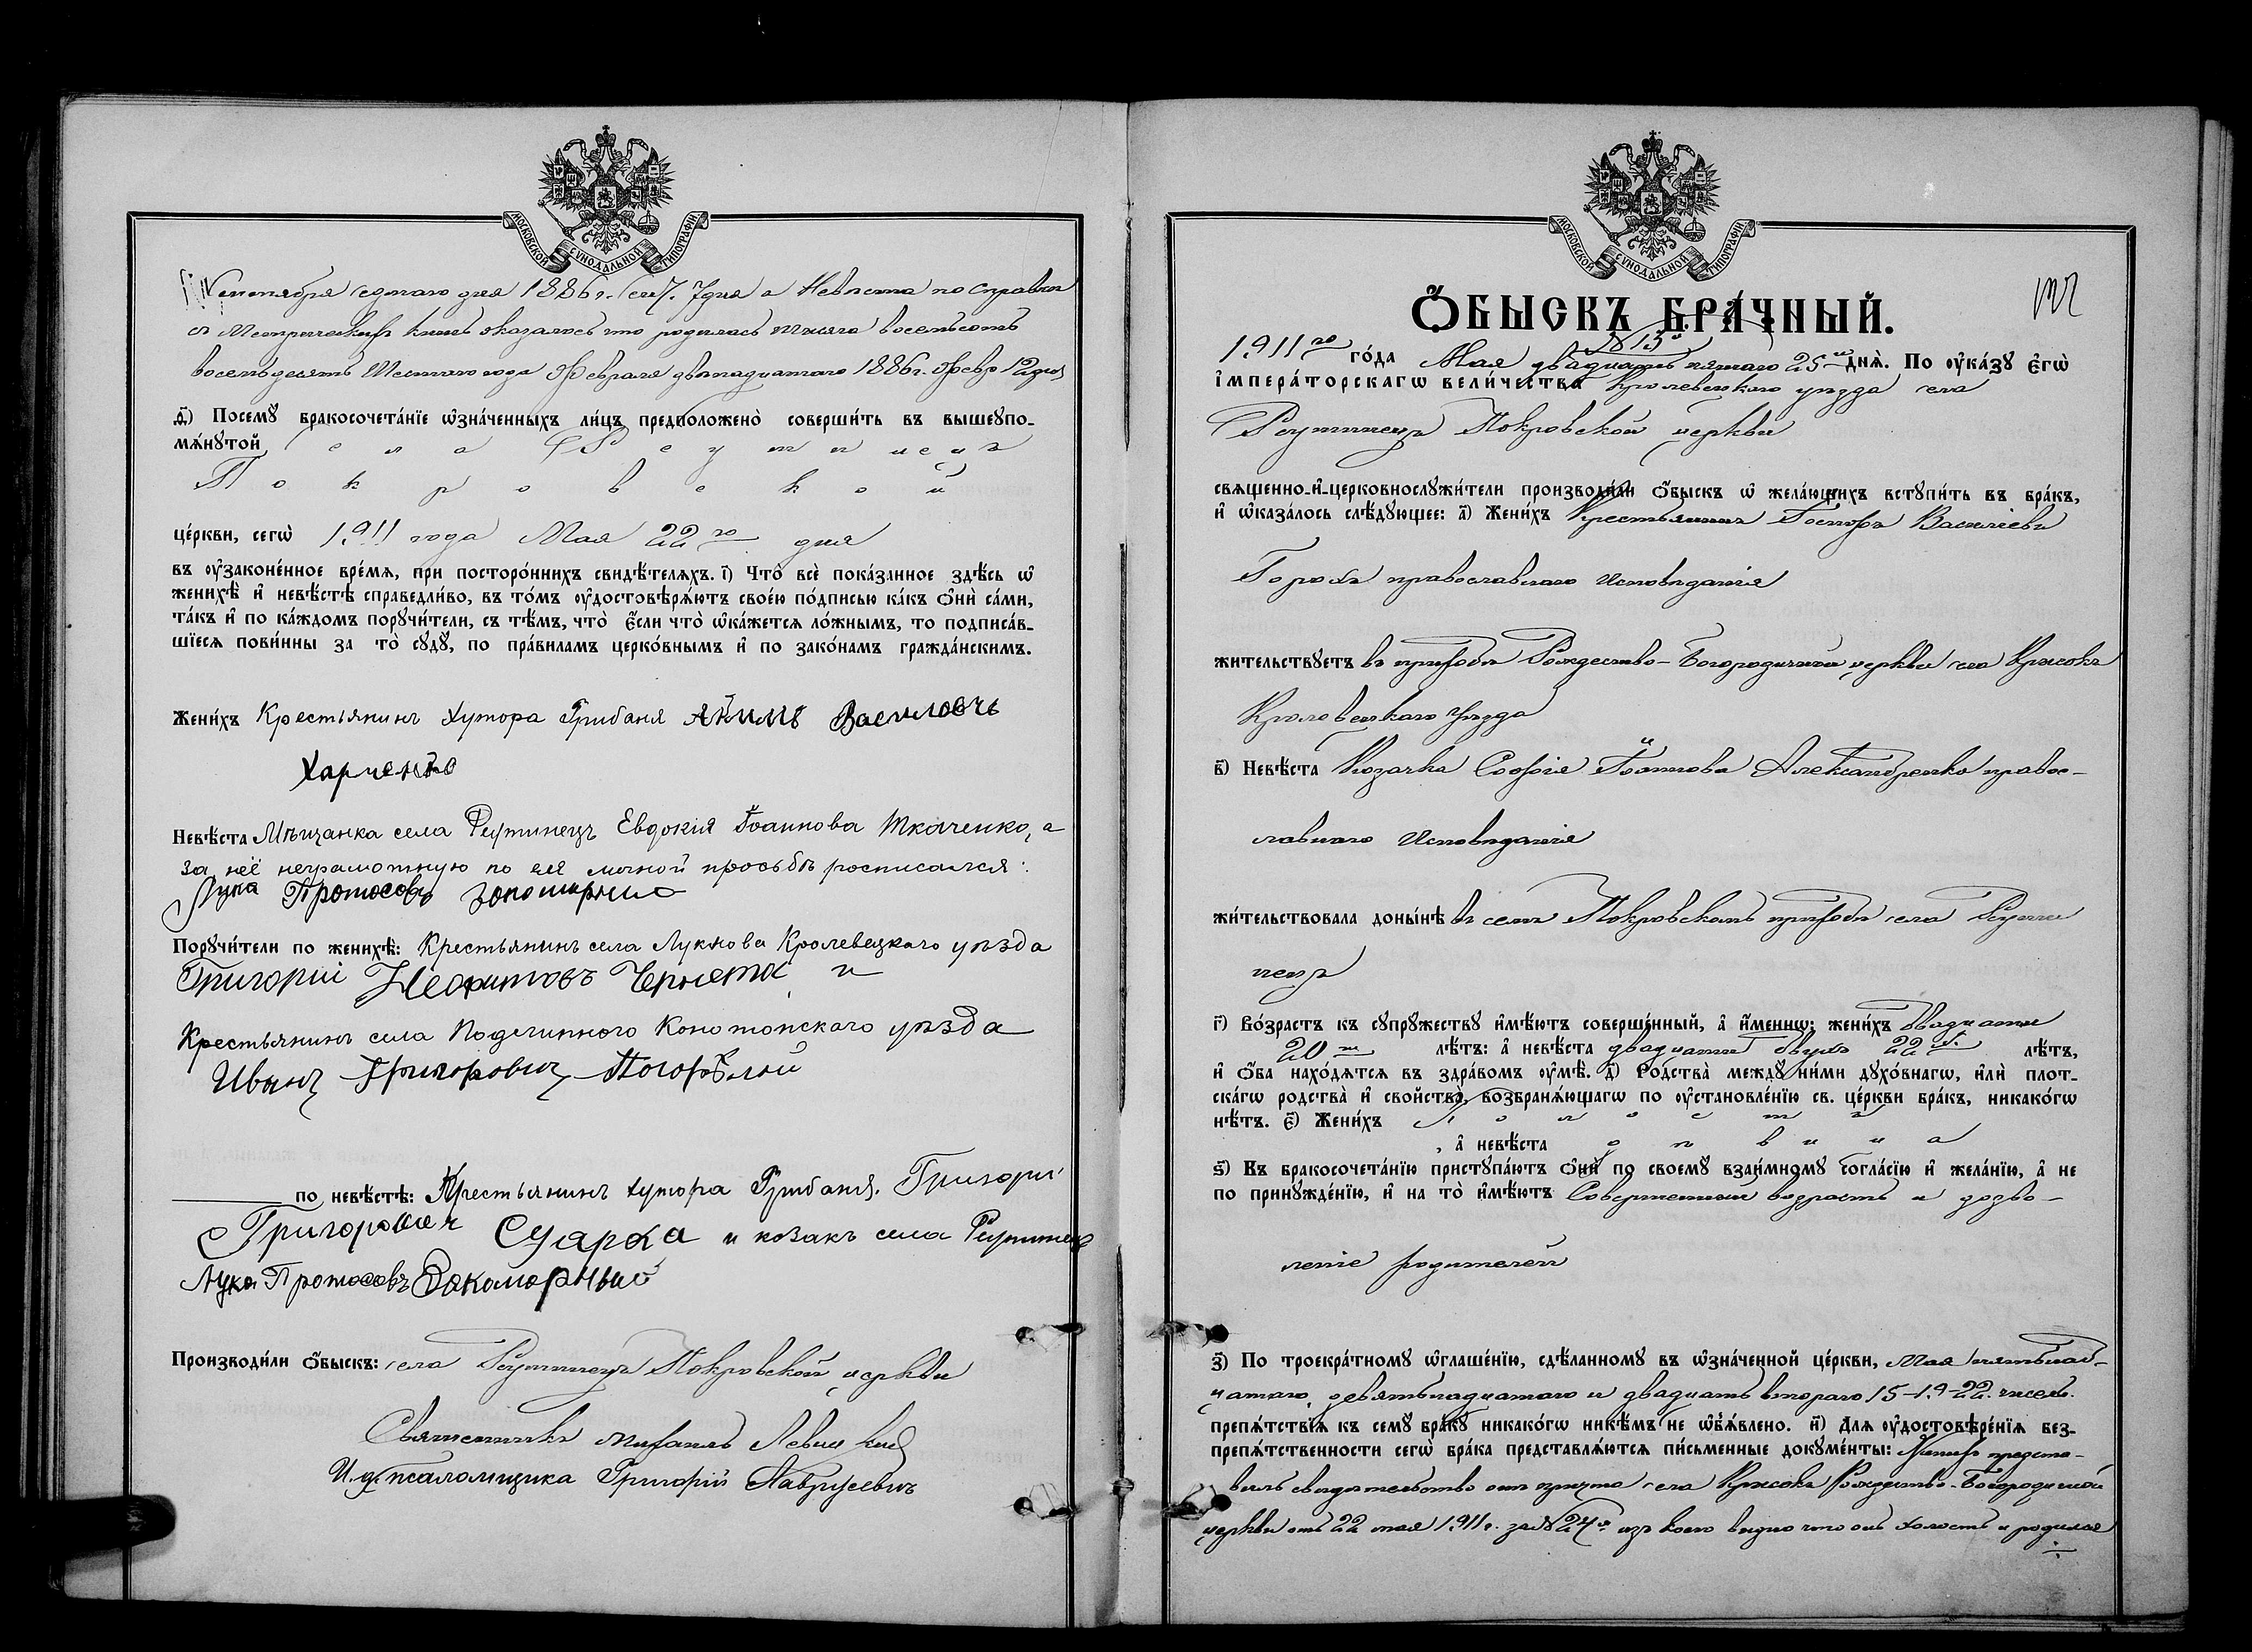 МОСКОВСКОЙ СѴНОДАЛЬНОЙ ТИПОГРАФІИ
Сентября седмаго дня 1886 г. сен. 7 дня а Невѣста по справкѣ
съ Метрическихъ книгъ оказалось что родилась тысяча восемьсотъ
восемьдесятъ Шестаго года Февраля двѣнадцатаго 1886 г. Февр. 12 дня
Посемꙋ̀ бракосочета́нїе ѡ҆зна́ченныхъ ли́цъ предположено̀ соверши́ть въ вышеꙋпо-
мѧ́нꙋтой села Реутинецъ
Покровской
це́ркви, сегѡ̀ 1911 года Мая 22го дня
въ ᲂу҆законе́нное вре́мѧ, при посторо́ннихъ свидѣ́телѧхъ. і҃) Что̀ всѐ пока́занное здѣ́сь ѡ҆
женихѣ̀ и҆ невѣ́стѣ справедли́во, въ то́мъ ᲂу҆достовѣрѧ́ютъ свое́ю по́дписью ка́къ ѻ҆нѝ са́ми,
та́къ и҆ по ка́ждомъ порꙋчи́тели, съ тѣ́мъ, что̀ є҆́сли что̀ ѡ҆ка́жетсѧ ло́жнымъ, то подписа́в-
шїесѧ пови́нны за то̀ сꙋдꙋ̀, по пра́виламъ церко́внымъ и҆ по зако́намъ гражда́нскимъ.
Жени́хъ Крестьянинъ хутора Грибаня Якимъ Василовчъ
Харченко
Невѣ́ста Мѣщанка села Реутинецъ Евдокія Іоаннова Ткаченко, а
за неё неграмотную по ея личной просьбѣ росписался:
Лука Протосовъ
Порꙋчи́тели по женихѣ̀: Крестьянинъ села Лукнова Кролевецкаго уѣзда
Григорій Неофитовъ Чернета и
Крестьянинъ села Подлипного Конотопскаго уѣзда
Иванъ Григоровичъ Погорѣлой
по невѣ́стѣ: Крестьянинъ хутора Грибаня. Григорі
Григорович и козакъ села Реутинецъ
Лука Протосовъ
Производи́ли ѻ҆́быскъ: села Реутинецъ Покровской церкви
Священникъ Михаилъ Левицкій
И. д. псаломщика Григорій
МОСКОВСКОЙ СѴНОДАЛЬНОЙ ТИПОГРАФІИ
Ѻ҆́БЫСКЪ БРА́ЧНЫЙ.
№ 13й
1911го го́да Мая двадцать пятаго 25го днѧ̀. По ᲂу҆ка́зꙋ є҆гѡ̀
і҆мпера́торскагѡ вели́чества Кролевецкаго уѣзда села
Реутинецъ Покровской церкви
свѧщенно-и҆-церковнослꙋжи́тели производи́ли ѻ҆́быскъ ѡ҆ жела́ющихъ встꙋпи́ть въ бра́къ,
и҆ ѡ҆каза́лось слѣ́дꙋющее: а҃) Жени́хъ Крестьянинъ Іосифъ Василіевъ
Горохъ православнаго исповѣданія
жи́тельствꙋетъ въ приходѣ Рождество-Богородичной церкви села
Кролевецкаго уѣзда
в҃) Невѣ́ста Козачка Софія Іоаннова Александренко правос-
лавнаго исповѣданія
жи́тельствовала доны́нѣ въ семъ Покровскомъ приходѣ села Реути
нецъ
г҃) Во́зрастъ къ сꙋпрꙋ́жествꙋ и҆мѣ́ютъ соверше́нный, а҆ и҆́меннѡ: жени́хъ Двадцати
20ти лѣ́тъ: а҆ невѣ́ста двадцати двухъ 22хъ лѣ́тъ,
и҆ ѻ҆́ба нахо́дѧтсѧ въ здра́вомъ ᲂу҆мѣ̀. д҃) Родства̀ междꙋ̀ ни́ми дꙋхо́внагѡ, и҆лѝ плот-
ска́гѡ родства̀ и҆ свойства̀, возбранѧ́ющагѡ по ᲂу҆становле́нїю св. це́ркви бра́къ, никако́гѡ
нѣ́тъ. є҃) Жени́хъ Холостъ
, а҆ невѣ́ста дѣвица
ѕ҃) Въ бракосочета́нїю пристꙋпа́ютъ ѻ҆нѝ по своемꙋ̀ взаи́мномꙋ согла́сїю и҆ жела́нїю, а҆ не
по принꙋжде́нїю, и҆ на то̀ и҆мѣ́ютъ Совершенный возрастъ и дозво-
леніе родителей
з҃) По троекра́тномꙋ ѡ҆глаше́нїю, сдѣ́ланномꙋ въ ѡ҆зна́ченной це́ркви, Мая пятьнад-
цатаго, девятьнадцатаго и двадцать втораго 15-19-22. чиселъ.
препѧ́тствїѧ къ семꙋ̀ бра́кꙋ никако́гѡ никѣ́мъ не ѡ҆б̾ѧ́влено. и҃) Для ᲂу҆достовѣре́нїѧ без-
препѧ́тственности сегѡ̀ бра́ка представлѧ́ютсѧ пи́сьменные докꙋме́нты: Женихъ предста-
вилъ свидетельство отъ причта села Рождество-Богородичной
церкви отъ 22 мая 1911 г. за № 24м изъ коего видно что онъ холостъ и родился